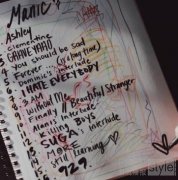 Manic
1. Ashley
2. clementine
3. GRAVEYARD
4. you should be sad
5. Forever ... (is a long time)
6. Dominic's interlude
7. I HATE EVERYBODY
8. 3AM
9. Without Me
10. Finally // Beautiful Stranger
11. Alanis' Interlude
12. Killing BOYS
13. SUGA's interlude
14. MORE
15. Still Learning
16. 929
style